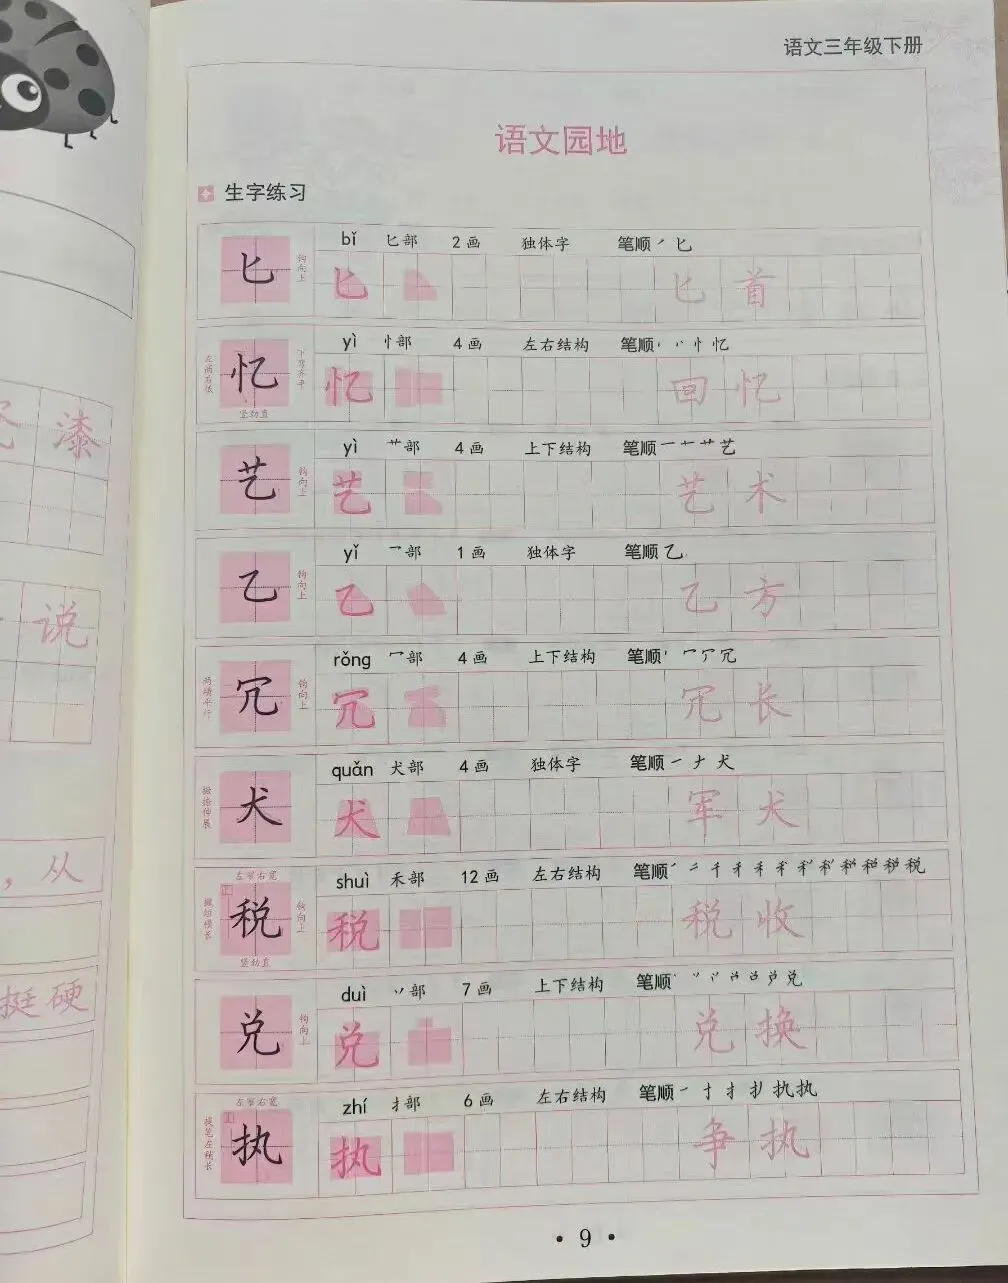 漆
说
，从
挺硬
语文三年级下册
语文园地
生字练习
bǐ 匕部 2画 独体字 笔顺 ㇒ 匕
匕 钩向上 匕 匕首
yì 忄部 4画 左右结构 笔顺 忄 忆
忆 竖勿直 忆 回忆
yì 艹部 4画 上下结构 笔顺 一 十 艹 艺
艺 钩向上 艺 艺术
yǐ 乛部 1画 独体字 笔顺 乙
乙 钩向上 乙 乙方
rǒng 冖部 4画 上下结构 笔顺 丶 冖 冗
两横平行 冗 钩向上 冗 冗长
quǎn 犬部 4画 独体字 笔顺 一 ナ 犬
撇捺伸展 犬 犬 军犬
左窄右宽
shuì 禾部 12画 左右结构 笔顺 税
税 钩向上 税 税收
竖勿直
duì 丷部 7画 上下结构 笔顺 兑
兑 钩向上 兑 兑换
左窄右宽
zhí 扌部 6画 左右结构 笔顺 一 十 扌 执 执
执 执 争执
• 9 •